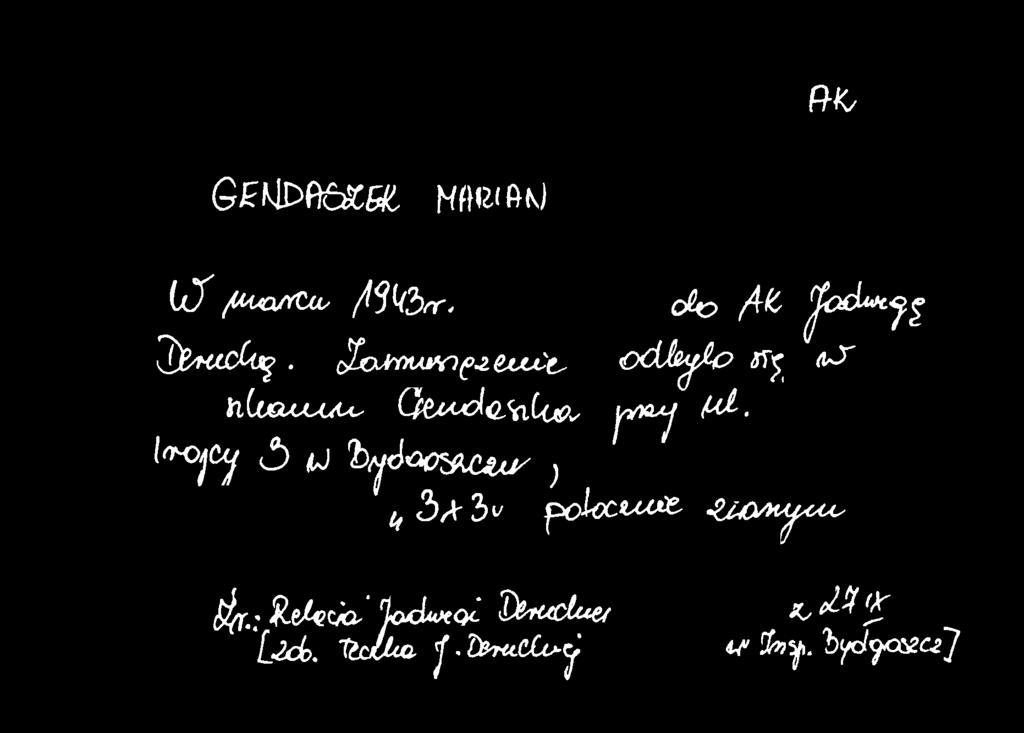 AK
GENDASZEK MARIAN
W marcu 1943 r. do AK Jadwigę
Deruckę. Zaprzysiężenie odbyło się w
Gendaszka przy ul.
Trójcy 3 w Bydgoszczy,
„3x3" potocznie zwanym
Źr.: Relacja Jadwigi Deruckiej z 27 IX
[zob. teczka J. Deruckiej w Insp. Bydgoszcz]